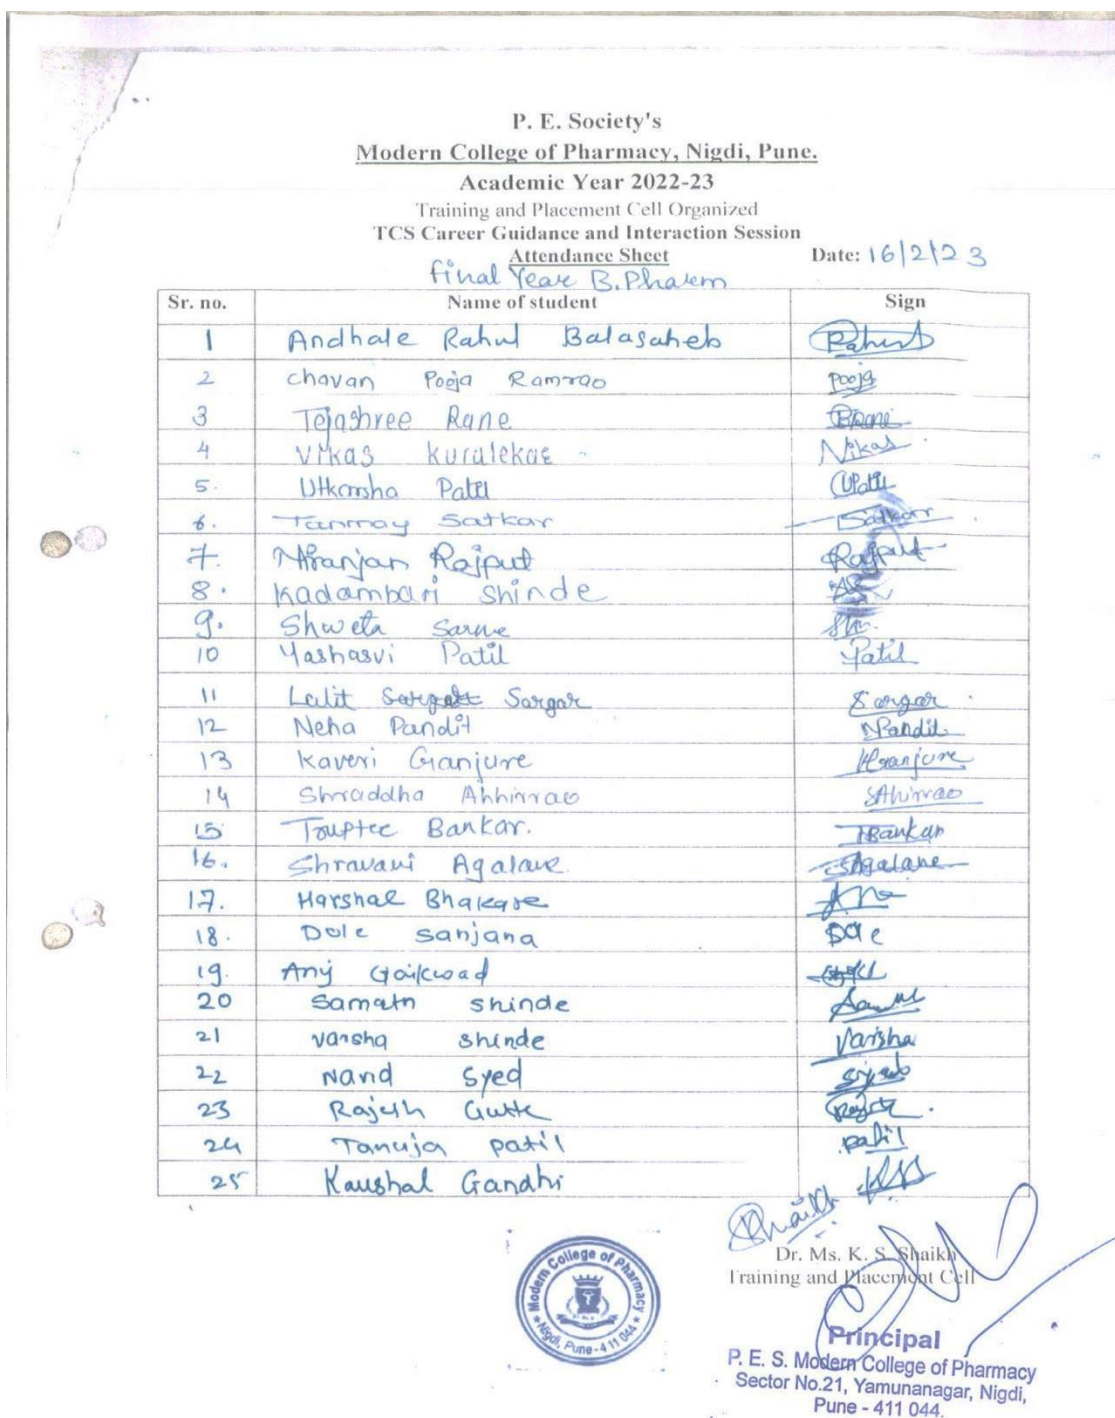 P. E. Society's
Modern College of Pharmacy, Nigdi, Pune.
Academic Year 2022-23
Training and Placement Cell Organized
TCS Career Guidance and Interaction Session
Attendance Sheet Date: 16/2/23
Final Year B.Pharm
Sr. no. Name of student Sign
1 Andhale Rahul Balasaheb Rahul
2 Chavan Pooja Ramrao Pooja
3 Tejashree Rane
4 Vikas Kuralekar Vikas
5. Utkarsha Patil UPatil
6. Tanmay Satkar Satkar
7. Niranjan Rajput Rajput
8. Kadambari Shinde
9. Shweta
10 Yashasvi Patil Patil
11 Lalit Sargar Sargar
12 Neha Pandit NPandit
13 Kaveri Ganjure KGanjure
14 Shraddha Ahhirrao SAhirrao
15 Truptee Bankar. TBankar
16. Shravani Agalave SAgalave
17. Harshal Bhakare
18. Dole Sanjana Dole
19. Gaikwad
20 shinde
21 Varsha Shinde Varsha
22 Syed
23
24 Tanuja patil patil
25 Kaushal Gandhi
Shaikh
Dr. Ms. K. S. Shaikh
Training and Placement Cell
Modern College of Pharmacy
Nigdi, Pune-411 044
Principal
P. E. S. Modern College of Pharmacy
Sector No.21, Yamunanagar, Nigdi,
Pune - 411 044.